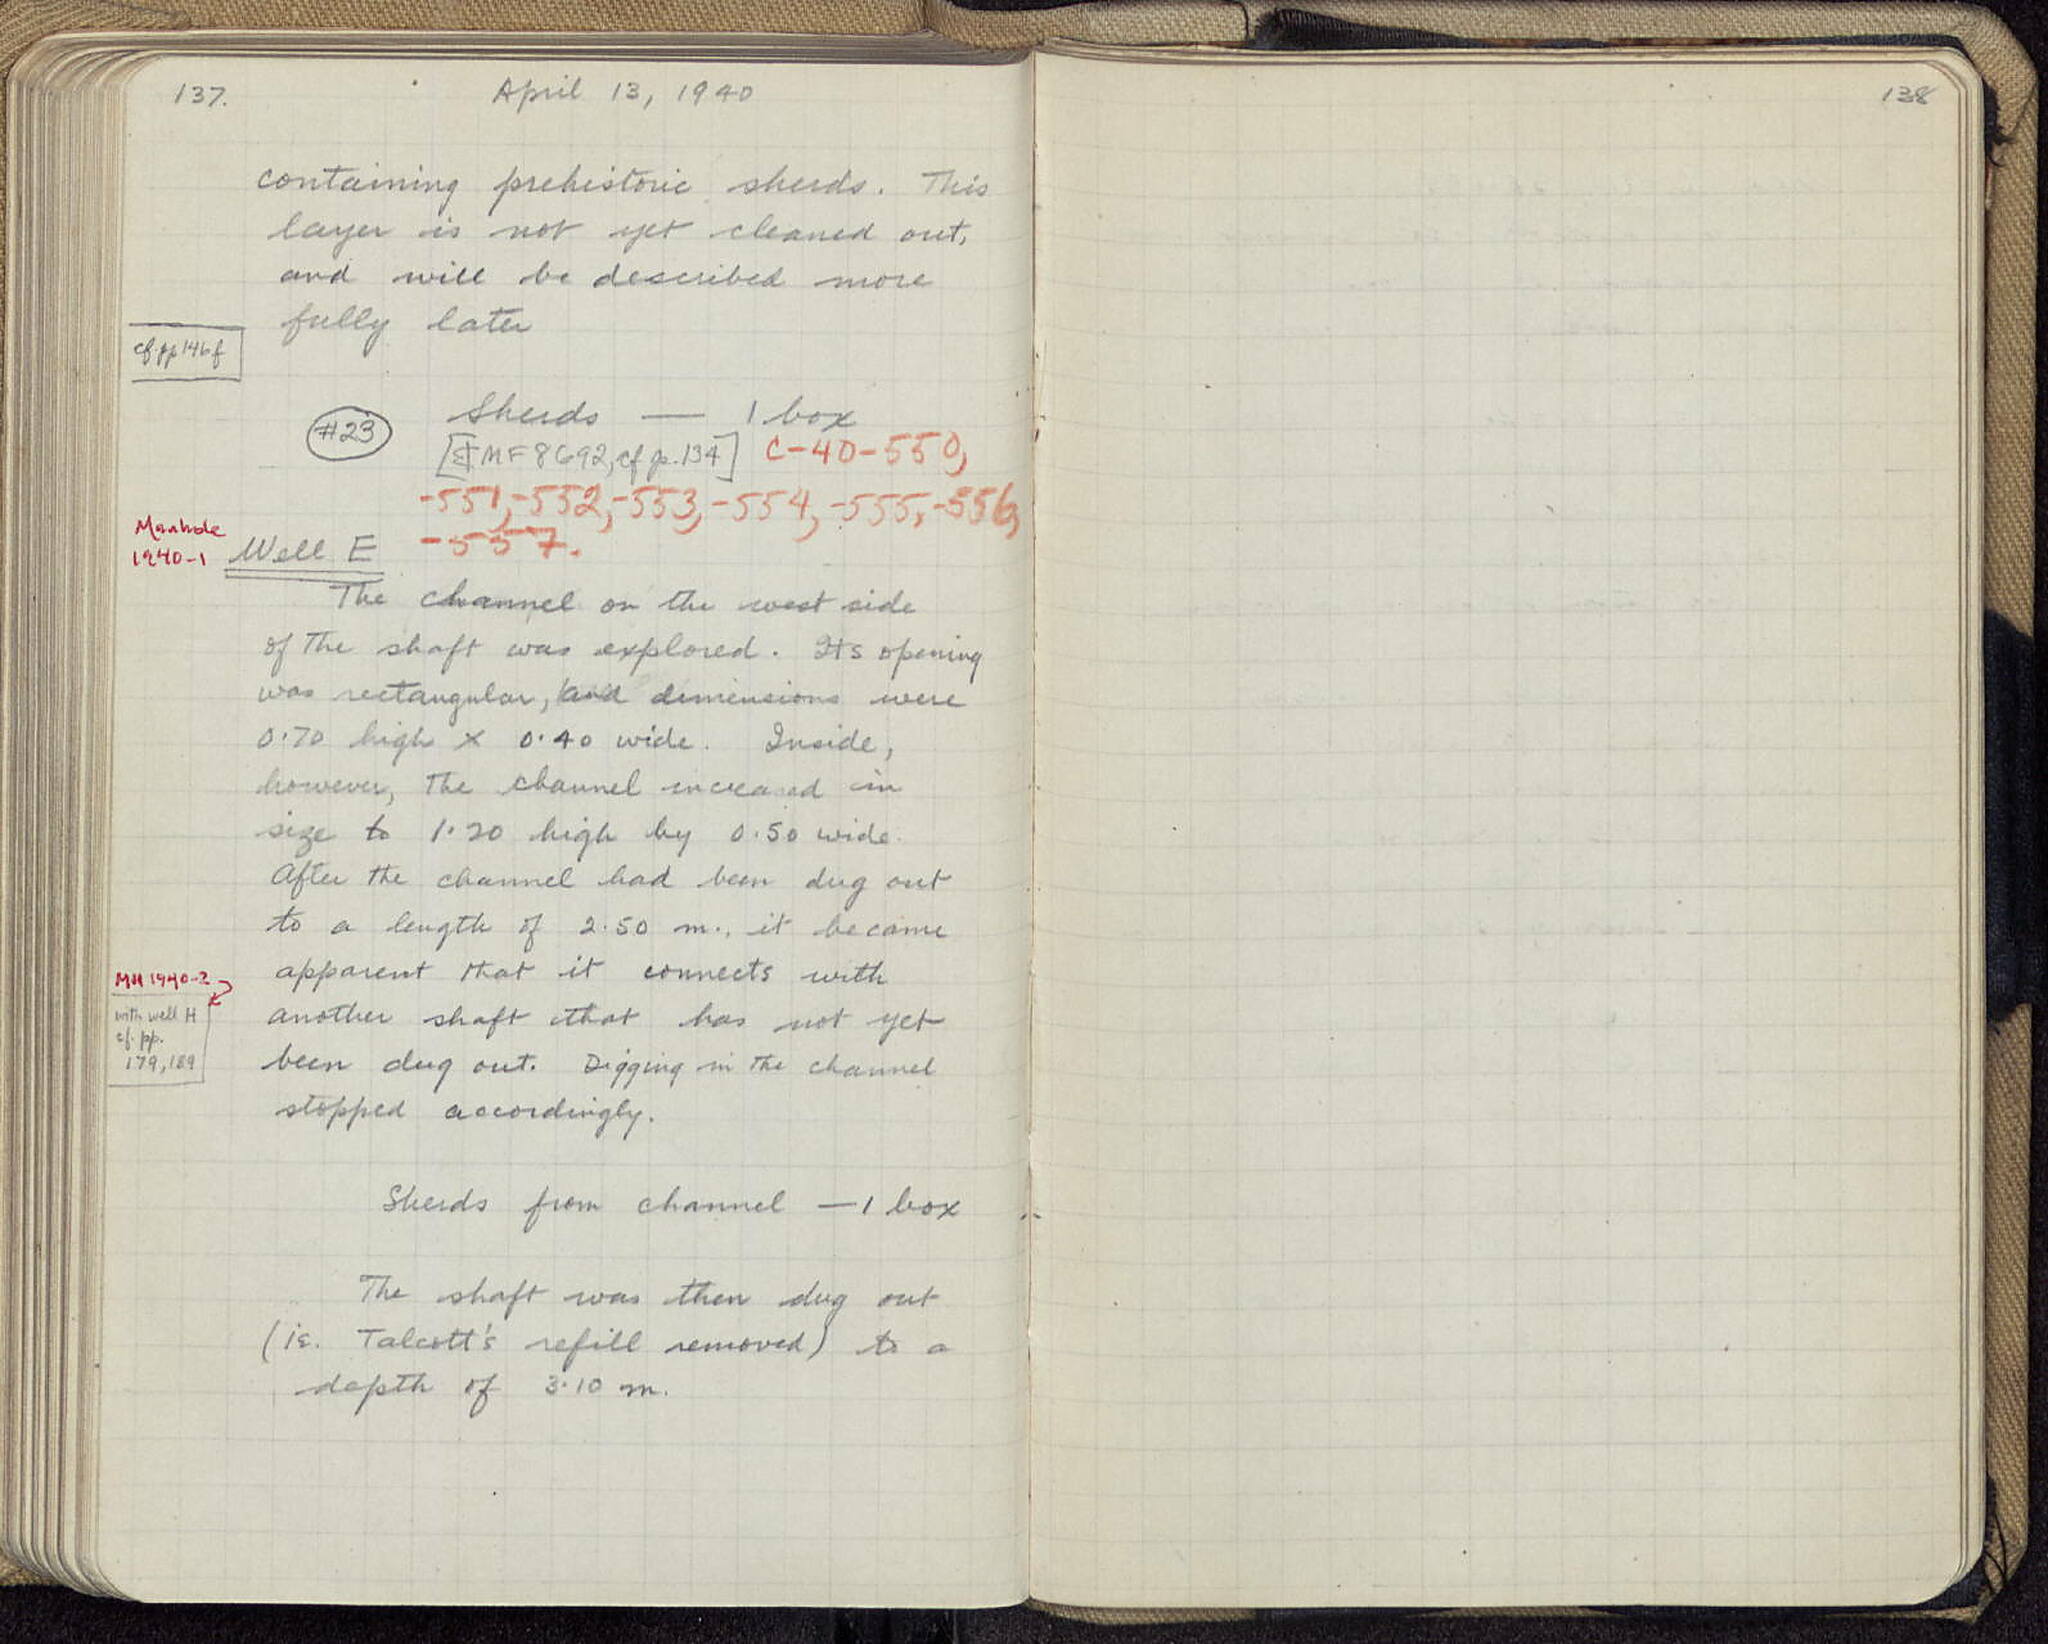 137.
April 13, 1940
containing prehistoric sherds. This
layer is not yet cleaned out,
and will be described more
fully later
cf. pp 146 f
#23
Sherds — 1 box
MF 8692, cf p. 134] C-40-550,
-551, -552, -553, -554, -555, -556,
-557.
Manhole
1940-1
Well E
The channel on the west side
of the shaft was explored. Its opening
was rectangular, and dimensions were
0.70 high x 0.40 wide. Inside,
however, the channel increased in
size to 1.20 high by 0.50 wide.
After the channel had been dug out
to a length of 2.50 m., it became
apparent that it connects with
another shaft that has not yet
been dug out. Digging in the channel
stopped accordingly.
MH 1940-2
with well H
cf. pp.
179, 189
Sherds from channel — 1 box
The shaft was then dug out
(ie. Talcott's refill removed) to a
depth of 3.10 m.
138